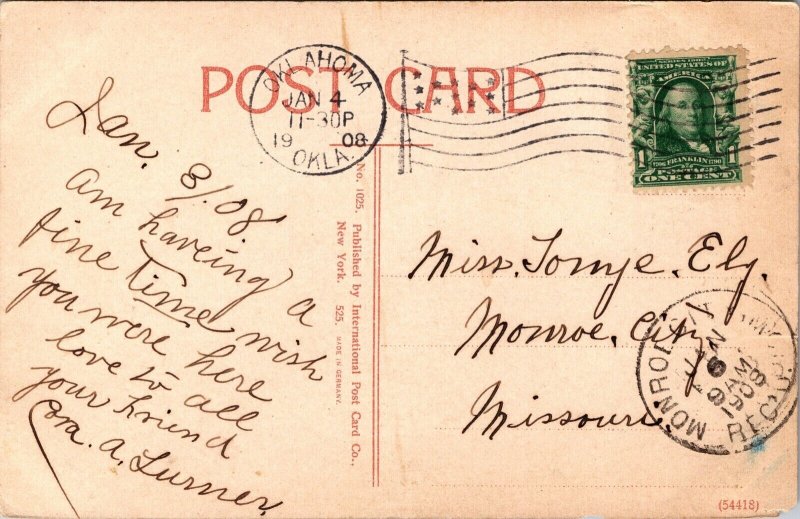 POST CARD
OKLAHOMA
JAN 4
11-30P
19 08
OKLA.
SERIES 1902
UNITED STATES OF
AMERICA
1706 FRANKLIN 1790
POSTAGE
1 ONE CENT 1
Jan. 3/08
am haveing a
fine time wish
you were here
love to all
your friend
Cora. A. Turner.
No. 1025. Published by International Post Card Co.,
New York. 525. MADE IN GERMANY.
Miss. Tomye. Ely.
Monroe. City
Missouri.
MONROE CITY
JAN
6
9 AM
1908
REC'D.
(54418)